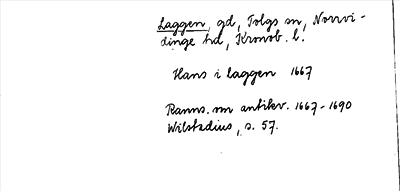 Laggen, gd, Tolgs sn, Norrvi-
dinge hd, Kronob. l.
Hans i laggen 1667
Ranns. om antikv. 1667-1690
Wilstadius, s. 57.